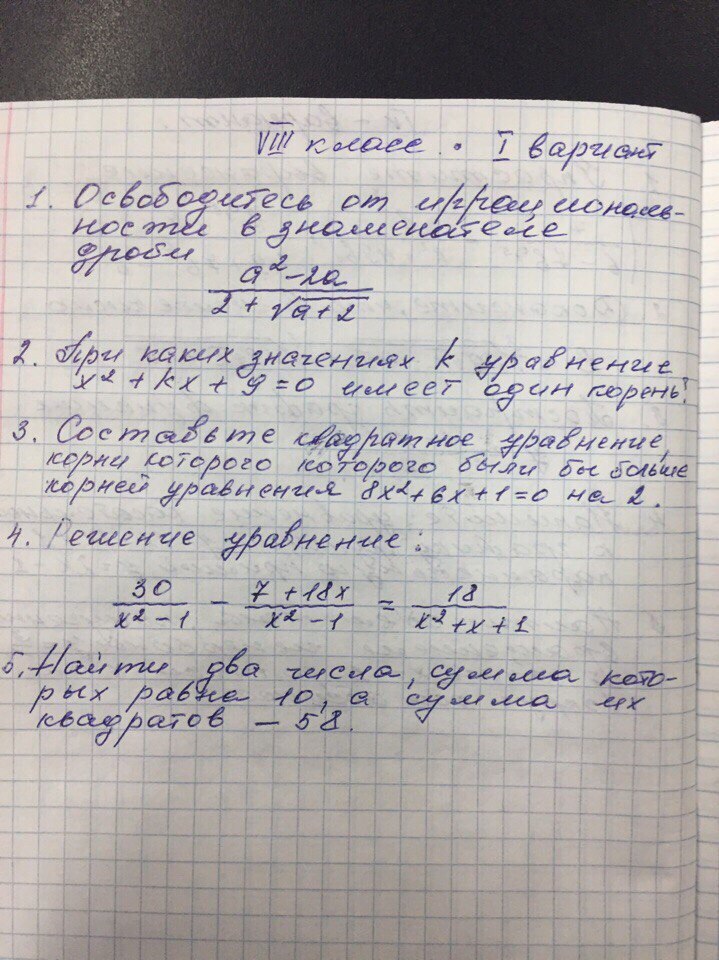 VIII класс. I вариант
1. Освободитесь от иррациональ-
ности в знаменателе
дроби
a² - 2a
2 + √a+2
2. При каких значениях k уравнение
x² + kx + 9 = 0 имеет один корень?
3. Составьте квадратное уравнение,
корни которого которого были бы больше
корней уравнения 8x² + 6x + 1 = 0 на 2.
4. Решение уравнение:
30/x² - 1 - 7 + 18x/x² - 1 = 18/x² + x + 1
5. Найти два числа, сумма кото-
рых равна 10, а сумма их
квадратов – 58.